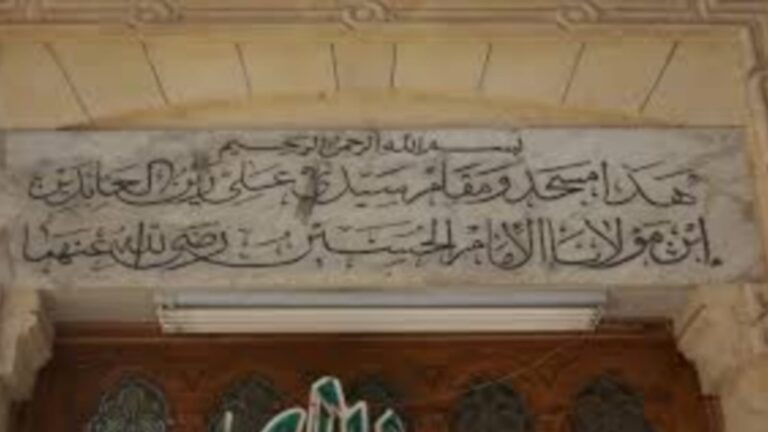 بسم الله الرحمن الرحيم
هذا مسجد ومقام سيدي على زين العابدين
ابن مولانا الإمام الحسين رضى الله عنهما